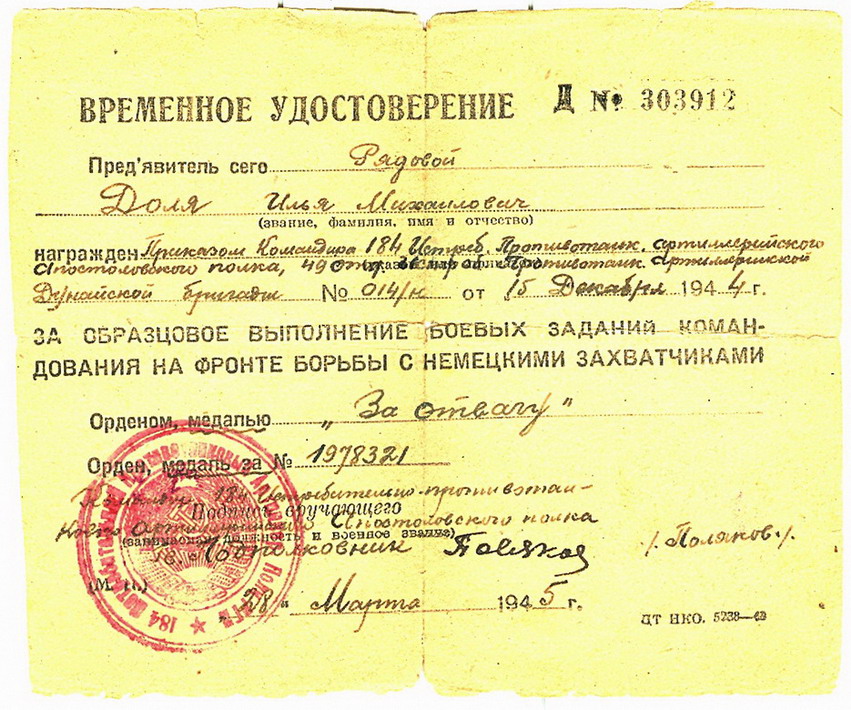 ВРЕМЕННОЕ УДОСТОВЕРЕНИЕ Д № 303912
Пред'явитель сего Рядовой
Доля Илья Михаилович
(звание, фамилия, имя и отчество)
награжден Приказом Командира 184 Истреб. Противотанк. артиллерийского
Апостоловского полка, 49 Противотанк. Артиллерийской
Дунайской бригады № 014/н от 15 Декабря 1944 г.
ЗА ОБРАЗЦОВОЕ ВЫПОЛНЕНИЕ БОЕВЫХ ЗАДАНИЙ КОМАН-
ДОВАНИЯ НА ФРОНТЕ БОРЬБЫ С НЕМЕЦКИМИ ЗАХВАТЧИКАМИ
Орденом, медалью „За отвагу"
Орден, медаль за № 1978321
184 Истребительно-противотан-
Подпись вручающего
Апостоловского полка
(занимаемая должность и военное звание)
Подполковник /Поляков/
(М. П.)
„28" Марта 1945 г.
ДТ НКО. 5238—